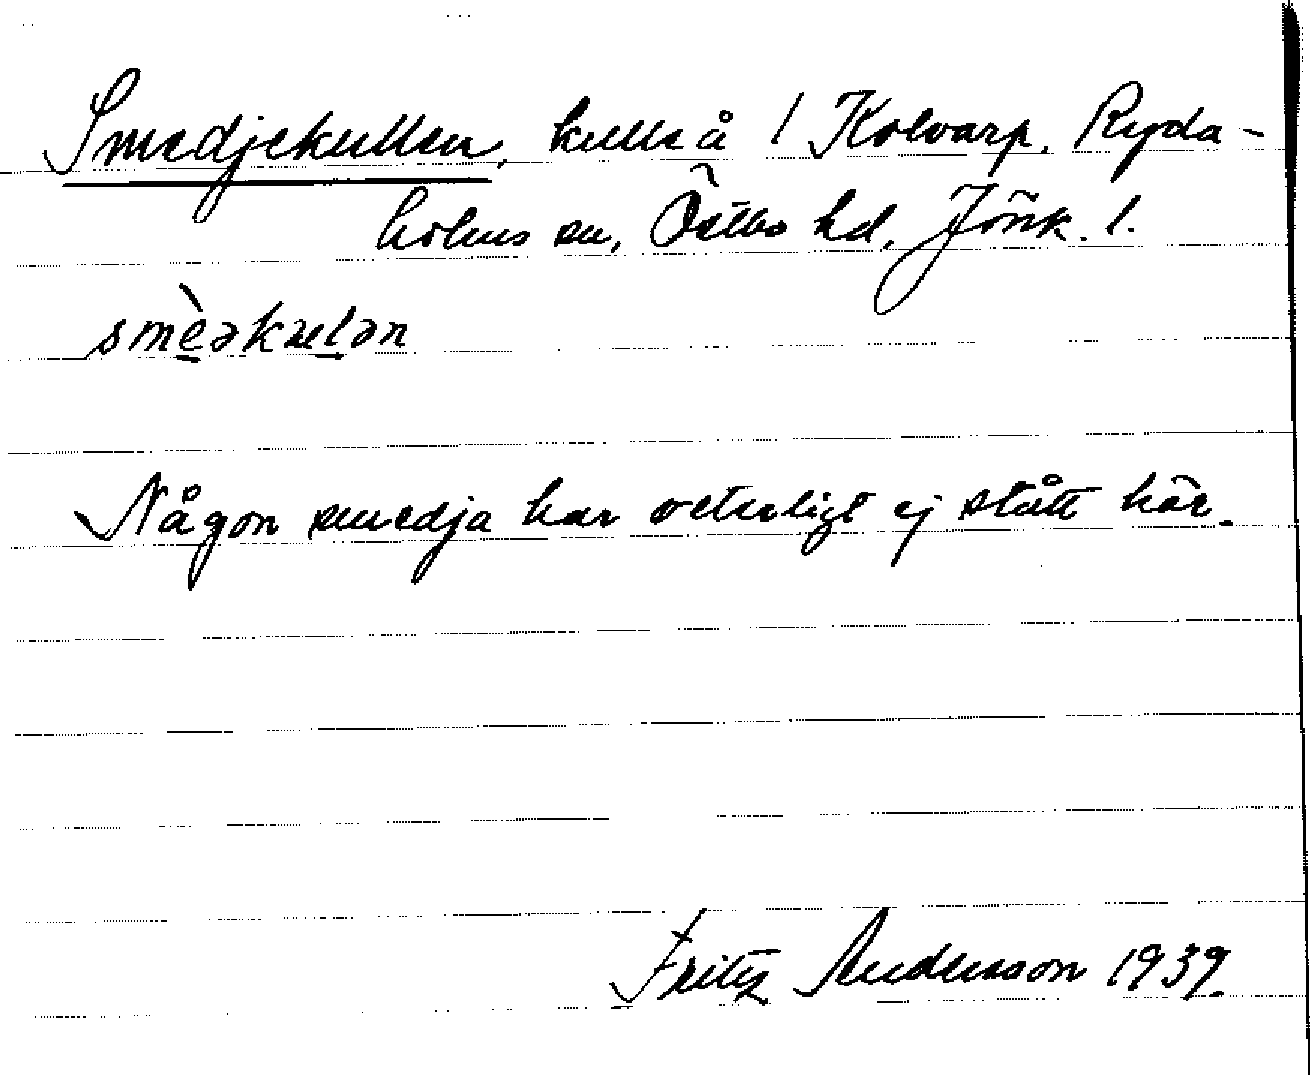 Smedjekullen, kulle å / Kolvarp, Ryda-
holms sn, Östbo hd, Jönk. l.
smèəkulən
Någon smedja har veterligt ej stått här.
Fritz Andersson 1939.